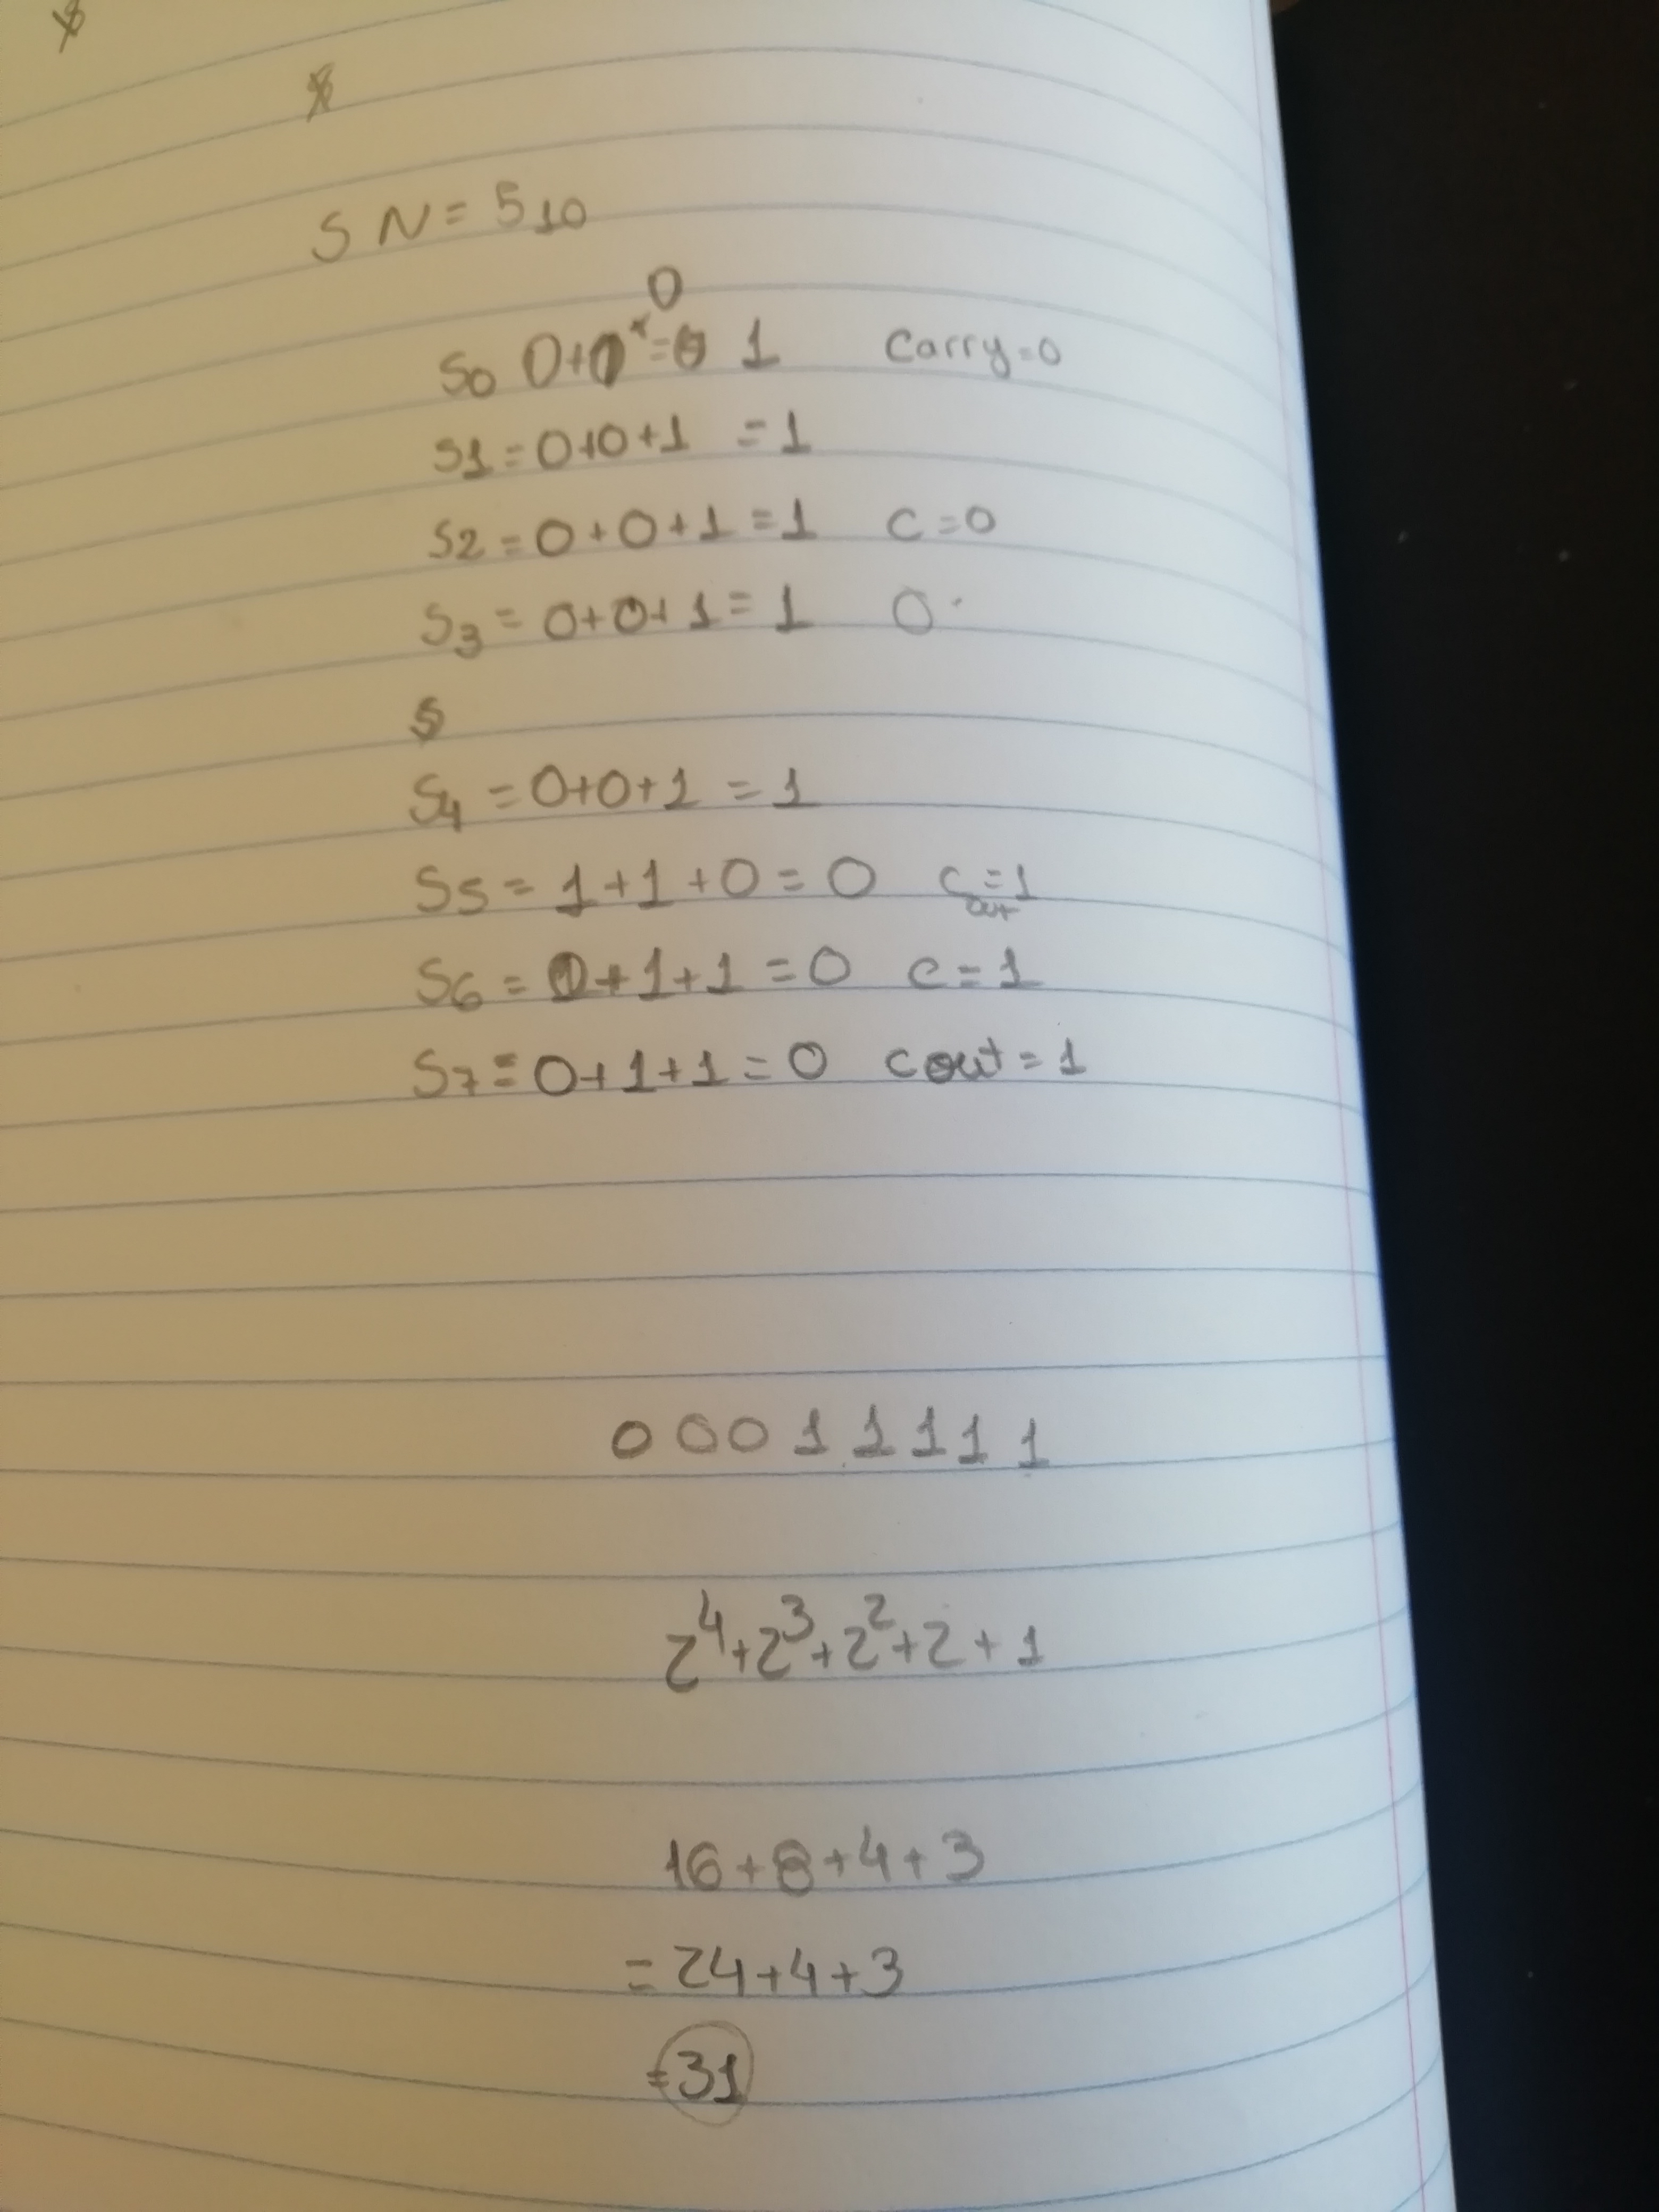 S N = 5₁₀
0
S0 0+0 = 1 Carry=0
S1 = 0+0+1 = 1
S2 = 0+0+1 = 1 C=0
S3 = 0+0+1 = 1 0
S
S4 = 0+0+1 = 1
S5 = 1+1+0 = 0 Cout=1
S6 = 0+1+1 = 0 C=1
S7 = 0+1+1 = 0 Cout=1
0 0 0 1 1 1 1 1
2⁴+2³+2²+2+1
16+8+4+3
= 24+4+3
=31